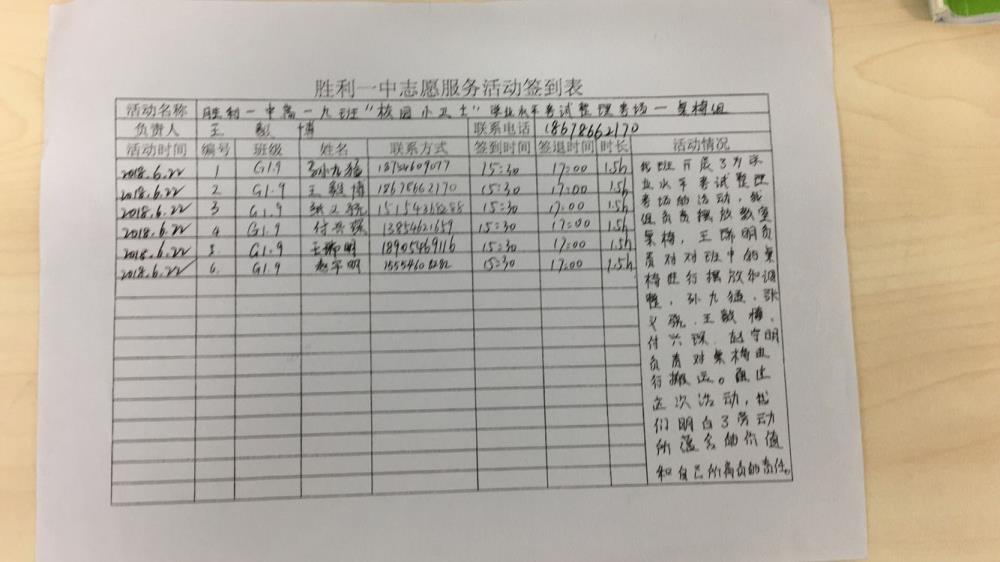 胜利一中志愿服务活动签到表
活动名称 胜利一中高一九班“校园小卫士”学业水平考试整理考场一桌椅组
负责人 王毅博 联系电话 18678662170
活动时间 编号 班级 姓名 联系方式 签到时间 签退时间 时长 活动情况
2018.6.22 1 G1.9 孙九 15:30 17:00 1.5h
2018.6.22 2 G1.9 王毅博 18678662170 15:30 17:00 1.5h
2018.6.22 3 G1.9 张义 15:30 17:00 1.5h
2018.6.22 4 G1.9 付兴琛 13854621659 15:30 17:00 1.5h
2018.6.22 5. G1.9 王瑞明 18905469116 15:30 17:00 1.5h
2018.6.22 6. G1.9 赵守明 15:30 17:00 1.5h
我班开展了为学
业水平考试整理
考场的活动,我
组负责摆放教室
桌椅,王瑞明负
责对对班中的桌
椅进行摆放和调
整,孙九,张
义,王毅博,
付兴琛,赵守明
负责对桌椅进
行搬运。通过
这次活动,我
们明白了劳动
所蕴含的价值
和自己所肩负的责任。